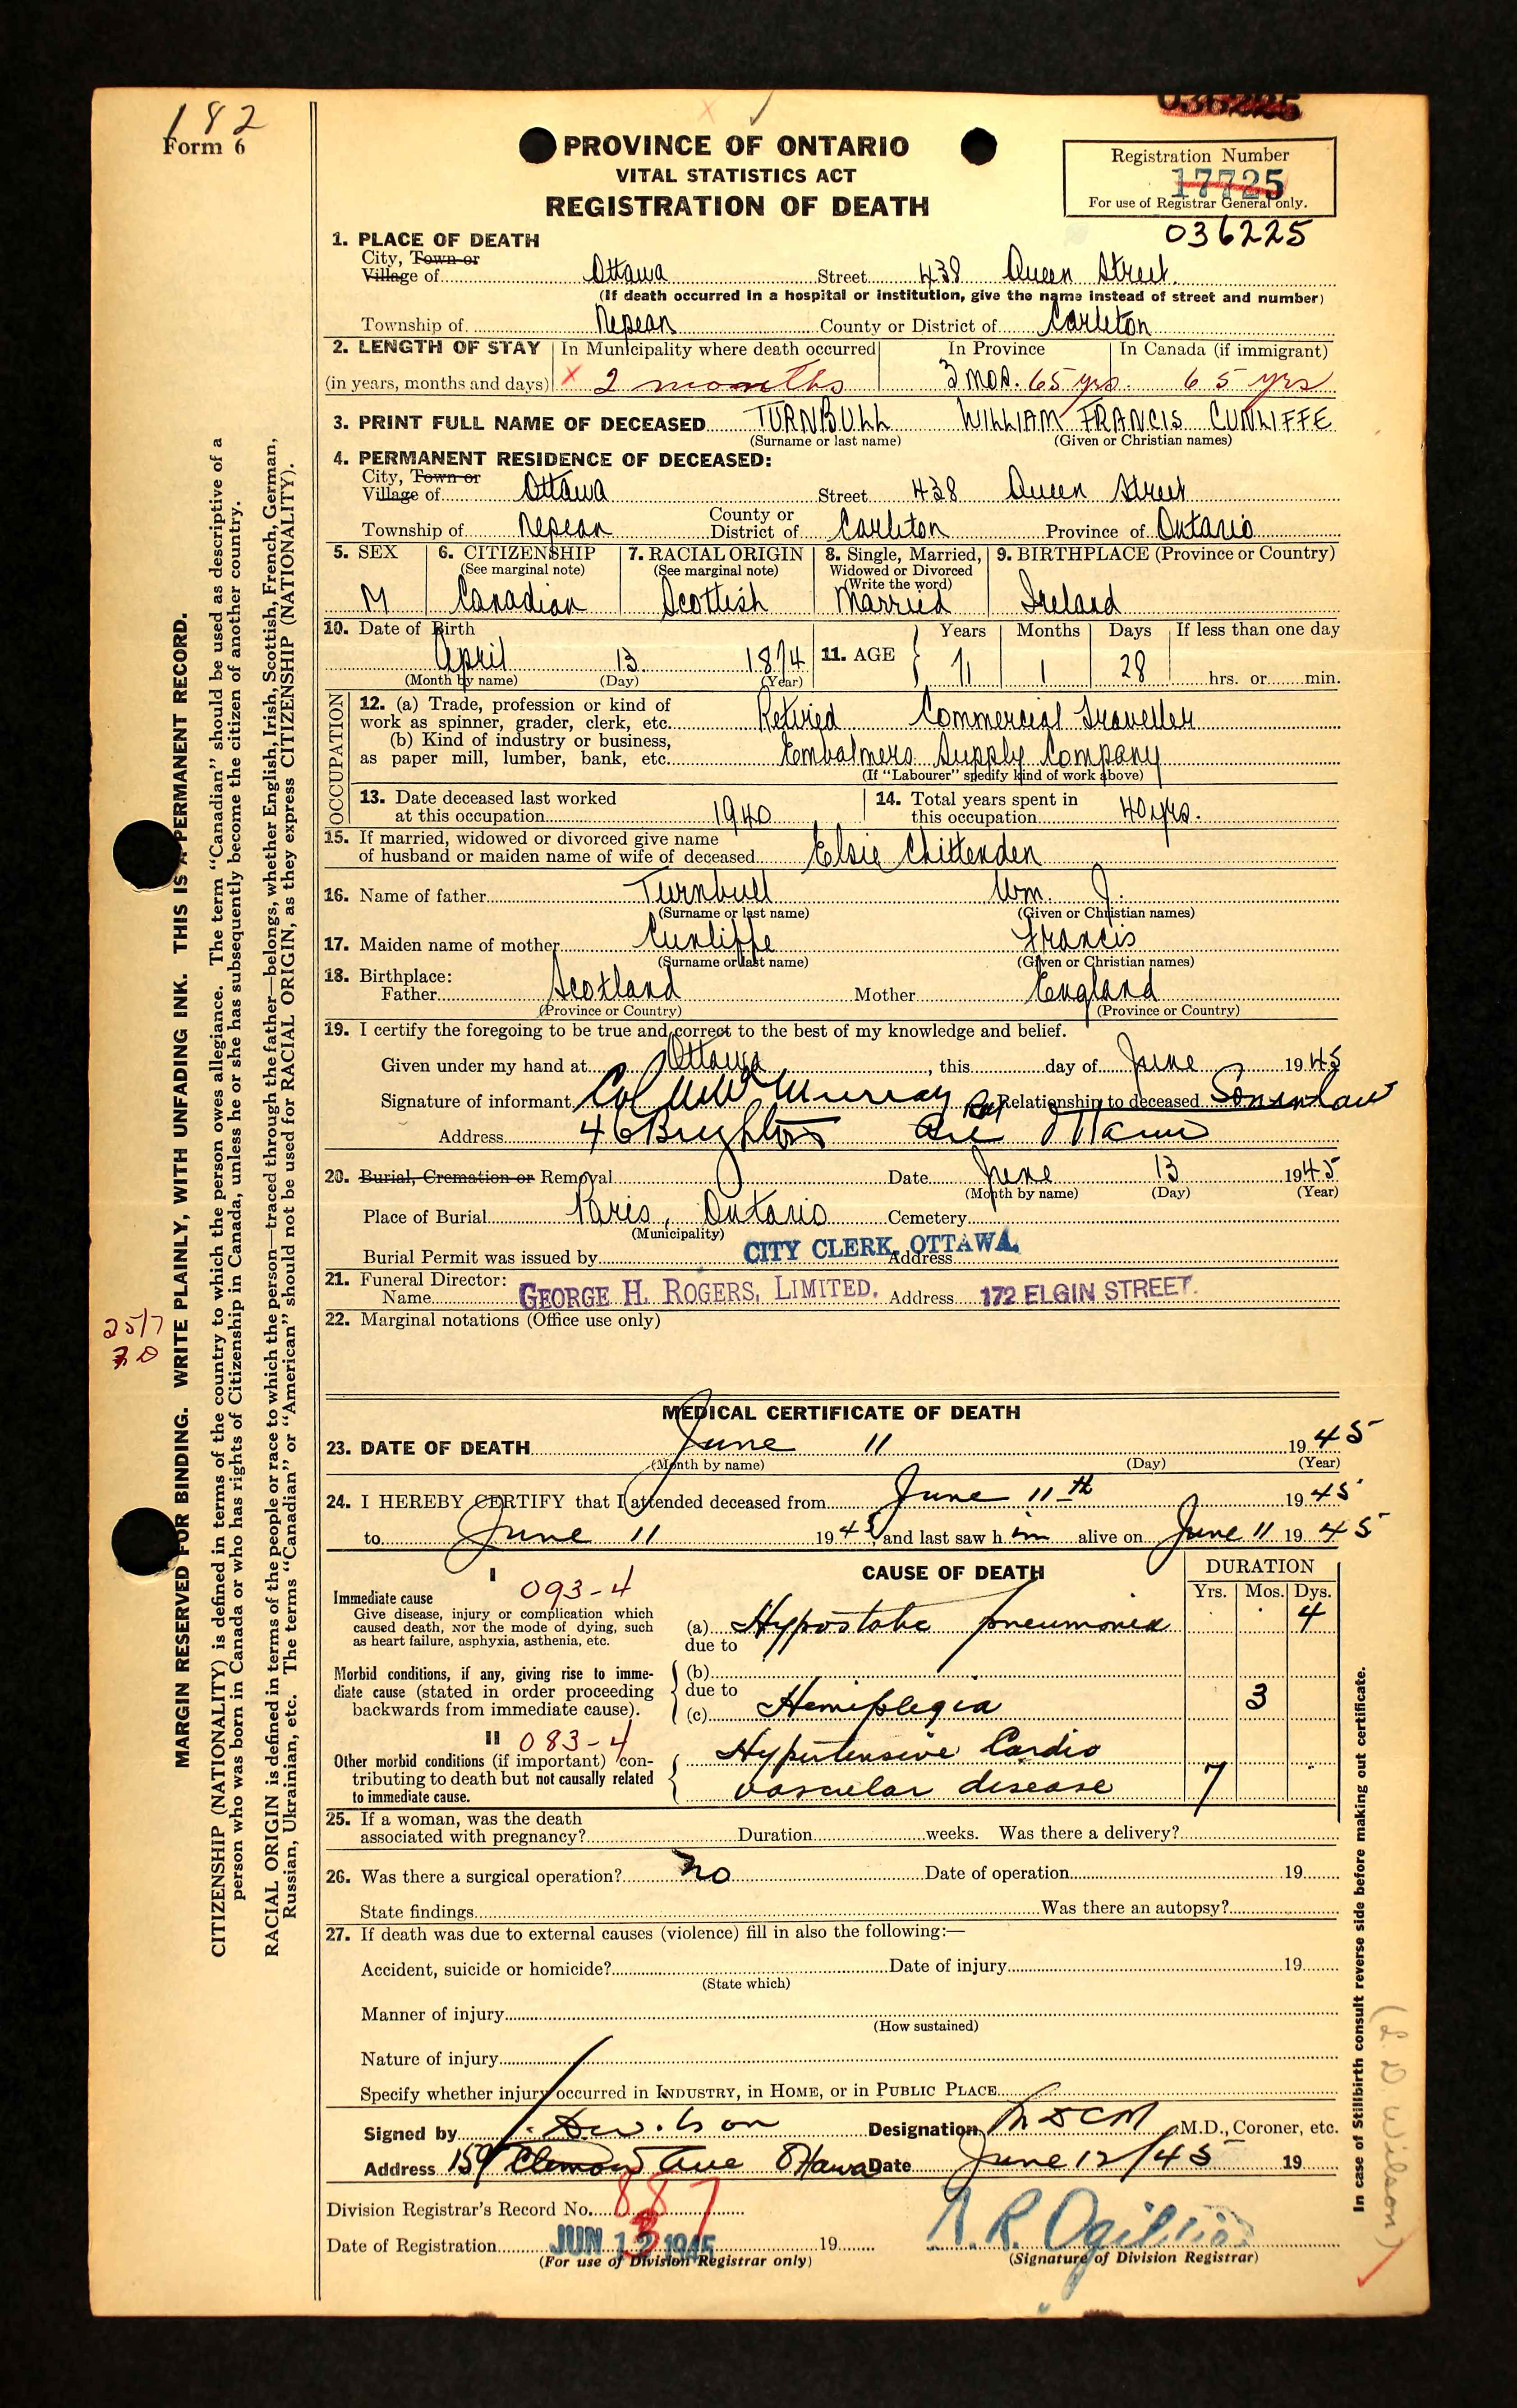 182
Form 6
036225
PROVINCE OF ONTARIO
VITAL STATISTICS ACT
REGISTRATION OF DEATH
Registration Number
17725
For use of Registrar General only.
036225
1. PLACE OF DEATH
City, Town or
Village of Ottawa Street 438 Queen Street.
(If death occurred in a hospital or institution, give the name instead of street and number)
Township of Nepean County or District of Carleton
2. LENGTH OF STAY In Municipality where death occurred In Province In Canada (if immigrant)
(in years, months and days) x 2 months 3 mos. 65 yrs. 65 yrs
3. PRINT FULL NAME OF DECEASED TURNBULL WILLIAM FRANCIS CUNLIFFE
(Surname or last name) (Given or Christian names)
4. PERMANENT RESIDENCE OF DECEASED:
City, Town or
Village of Ottawa Street 438 Queen Street
Township of Nepean County or District of Carleton Province of Ontario
5. SEX 6. CITIZENSHIP 7. RACIAL ORIGIN 8. Single, Married, 9. BIRTHPLACE (Province or Country)
(See marginal note) (See marginal note) Widowed or Divorced
(Write the word)
M Canadian Scottish Married Ireland
10. Date of Birth 11. AGE Years Months Days If less than one day
April 13 1874 71 1 28 hrs. or min.
(Month by name) (Day) (Year)
OCCUPATION
12. (a) Trade, profession or kind of
work as spinner, grader, clerk, etc. Retired Commercial Traveller
(b) Kind of industry or business,
as paper mill, lumber, bank, etc. Embalmers Supply Company
(If "Labourer" specify kind of work above)
13. Date deceased last worked
at this occupation 1940
14. Total years spent in
this occupation 40 yrs.
15. If married, widowed or divorced give name
of husband or maiden name of wife of deceased Elsie Chittenden
16. Name of father Turnbull Wm. J.
(Surname or last name) (Given or Christian names)
17. Maiden name of mother Cunliffe Francis
(Surname or last name) (Given or Christian names)
18. Birthplace:
Father Scotland Mother England
(Province or Country) (Province or Country)
19. I certify the foregoing to be true and correct to the best of my knowledge and belief.
Given under my hand at Ottawa, this day of June 1945
Signature of informant Col Murray Relationship to deceased Son in law
Address 46 Brighton Ave Ottawa
20. Burial, Cremation or Removal Date June 13 1945
(Month by name) (Day) (Year)
Place of Burial Paris, Ontario Cemetery
(Municipality)
Burial Permit was issued by CITY CLERK, OTTAWA. Address
21. Funeral Director:
Name GEORGE H. ROGERS, LIMITED. Address 172 ELGIN STREET.
22. Marginal notations (Office use only)
MEDICAL CERTIFICATE OF DEATH
23. DATE OF DEATH June 11 1945
(Month by name) (Day) (Year)
24. I HEREBY CERTIFY that I attended deceased from June 11th 1945
to June 11 1945 and last saw him alive on June 11 1945
CAUSE OF DEATH DURATION
Yrs. Mos. Dys.
I 093-4
Immediate cause
Give disease, injury or complication which
caused death, NOT the mode of dying, such
as heart failure, asphyxia, asthenia, etc.
(a) Hypostatic pneumonia 4
due to
Morbid conditions, if any, giving rise to imme-
diate cause (stated in order proceeding
backwards from immediate cause).
(b)
due to
(c) Hemiplegia 3
II 083-4
Other morbid conditions (if important) con-
tributing to death but not causally related
to immediate cause.
Hypertensive Cardio
vascular disease 7
25. If a woman, was the death
associated with pregnancy? Duration weeks. Was there a delivery?
26. Was there a surgical operation? no Date of operation 19
State findings Was there an autopsy?
27. If death was due to external causes (violence) fill in also the following:—
Accident, suicide or homicide? Date of injury 19
(State which)
Manner of injury
(How sustained)
Nature of injury
Specify whether injury occurred in INDUSTRY, in HOME, or in PUBLIC PLACE
Signed by Wilson Designation MDCM M.D., Coroner, etc.
Address 159 Clemow Ave Ottawa Date June 12/45 19
Division Registrar's Record No. 887
Date of Registration JUN 12 1945 19
(For use of Division Registrar only)
A. R. Ogilvie
(Signature of Division Registrar)
MARGIN RESERVED FOR BINDING. WRITE PLAINLY, WITH UNFADING INK. THIS IS A PERMANENT RECORD.
CITIZENSHIP (NATIONALITY) is defined in terms of the country to which the person owes allegiance. The term "Canadian" should be used as descriptive of a
person who was born in Canada or who has rights of Citizenship in Canada, unless he or she has subsequently become the citizen of another country.
RACIAL ORIGIN is defined in terms of the people or race to which the person—traced through the father—belongs, whether English, Irish, Scottish, French, German,
Russian, Ukrainian, etc. The terms "Canadian" or "American" should not be used for RACIAL ORIGIN, as they express CITIZENSHIP (NATIONALITY).
25/7
In case of Stillbirth consult reverse side before making out certificate.
(S. D. Wilson)